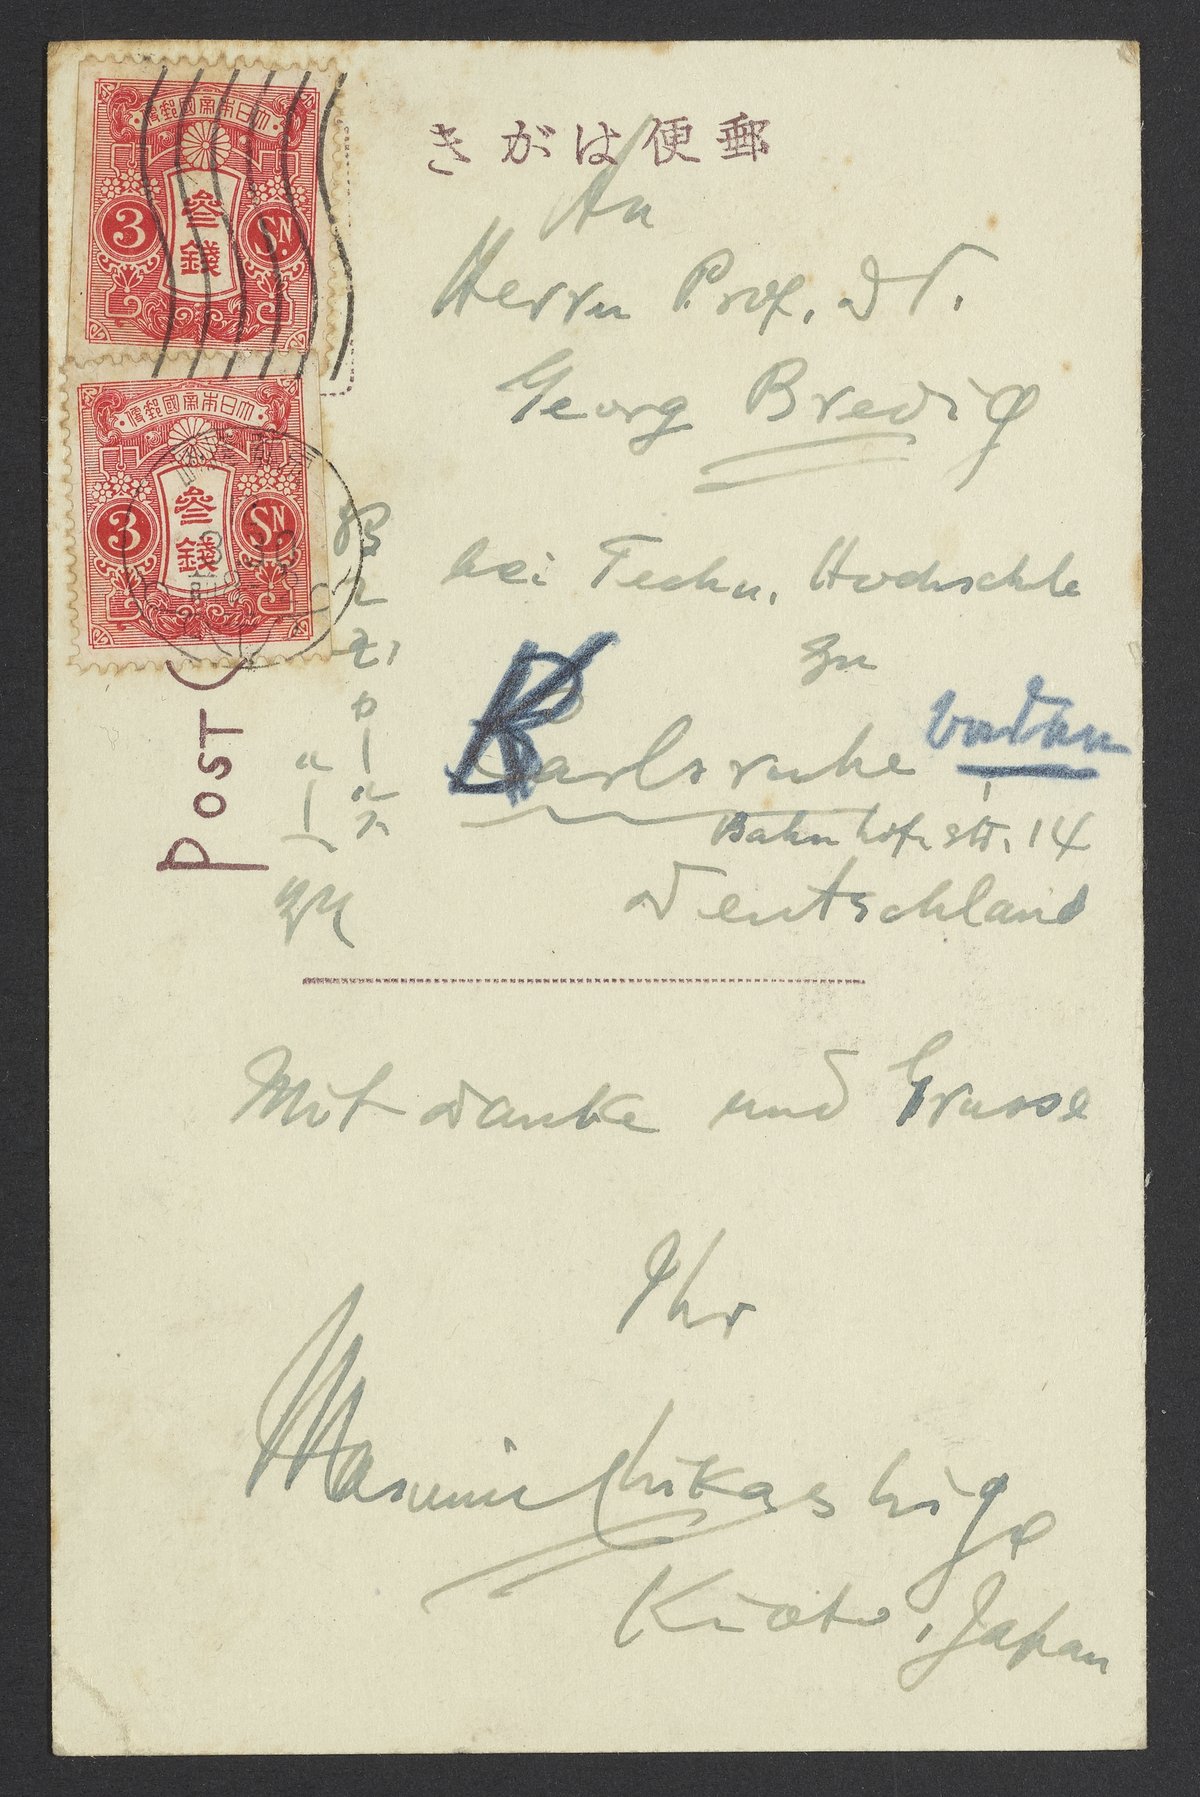 大日本帝國郵便
3
參錢
SN.
大日本帝國郵便
3
參錢
SN.
郵便はがき
POST C
An
Herrn Prof. Dr.
Georg Bredig
bei Techn. Hochschle
zu
Karlsruhe
Baden
Bahnhofstr. 14
Deutschland
Mit Danke und Grusse
Ihr
Masumi Chikashige
Kioto, Japan